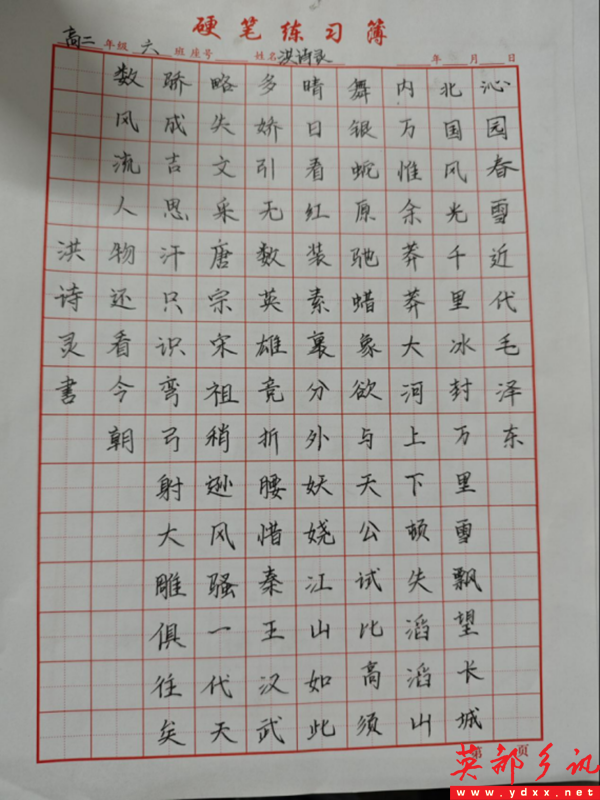 硬笔练习簿
高二年级 六班 座号 姓名洪诗灵 年 月 日
沁园春雪近代毛泽东
北国风光千里冰封万里雪飘望长城
内万惟余莽莽大河上下顿失滔滔山
舞银蛇原驰蜡象欲与天公试比高须
晴日看红装素裹分外妖娆江山如此
多娇引无数英雄竞折腰惜秦王汉武
略失文采唐宗宋祖稍逊风骚一代天
骄成吉思汗只识弯弓射大雕俱往矣
数风流人物还看今朝
洪诗灵书
第 页
英都乡讯
www.ydxx.net